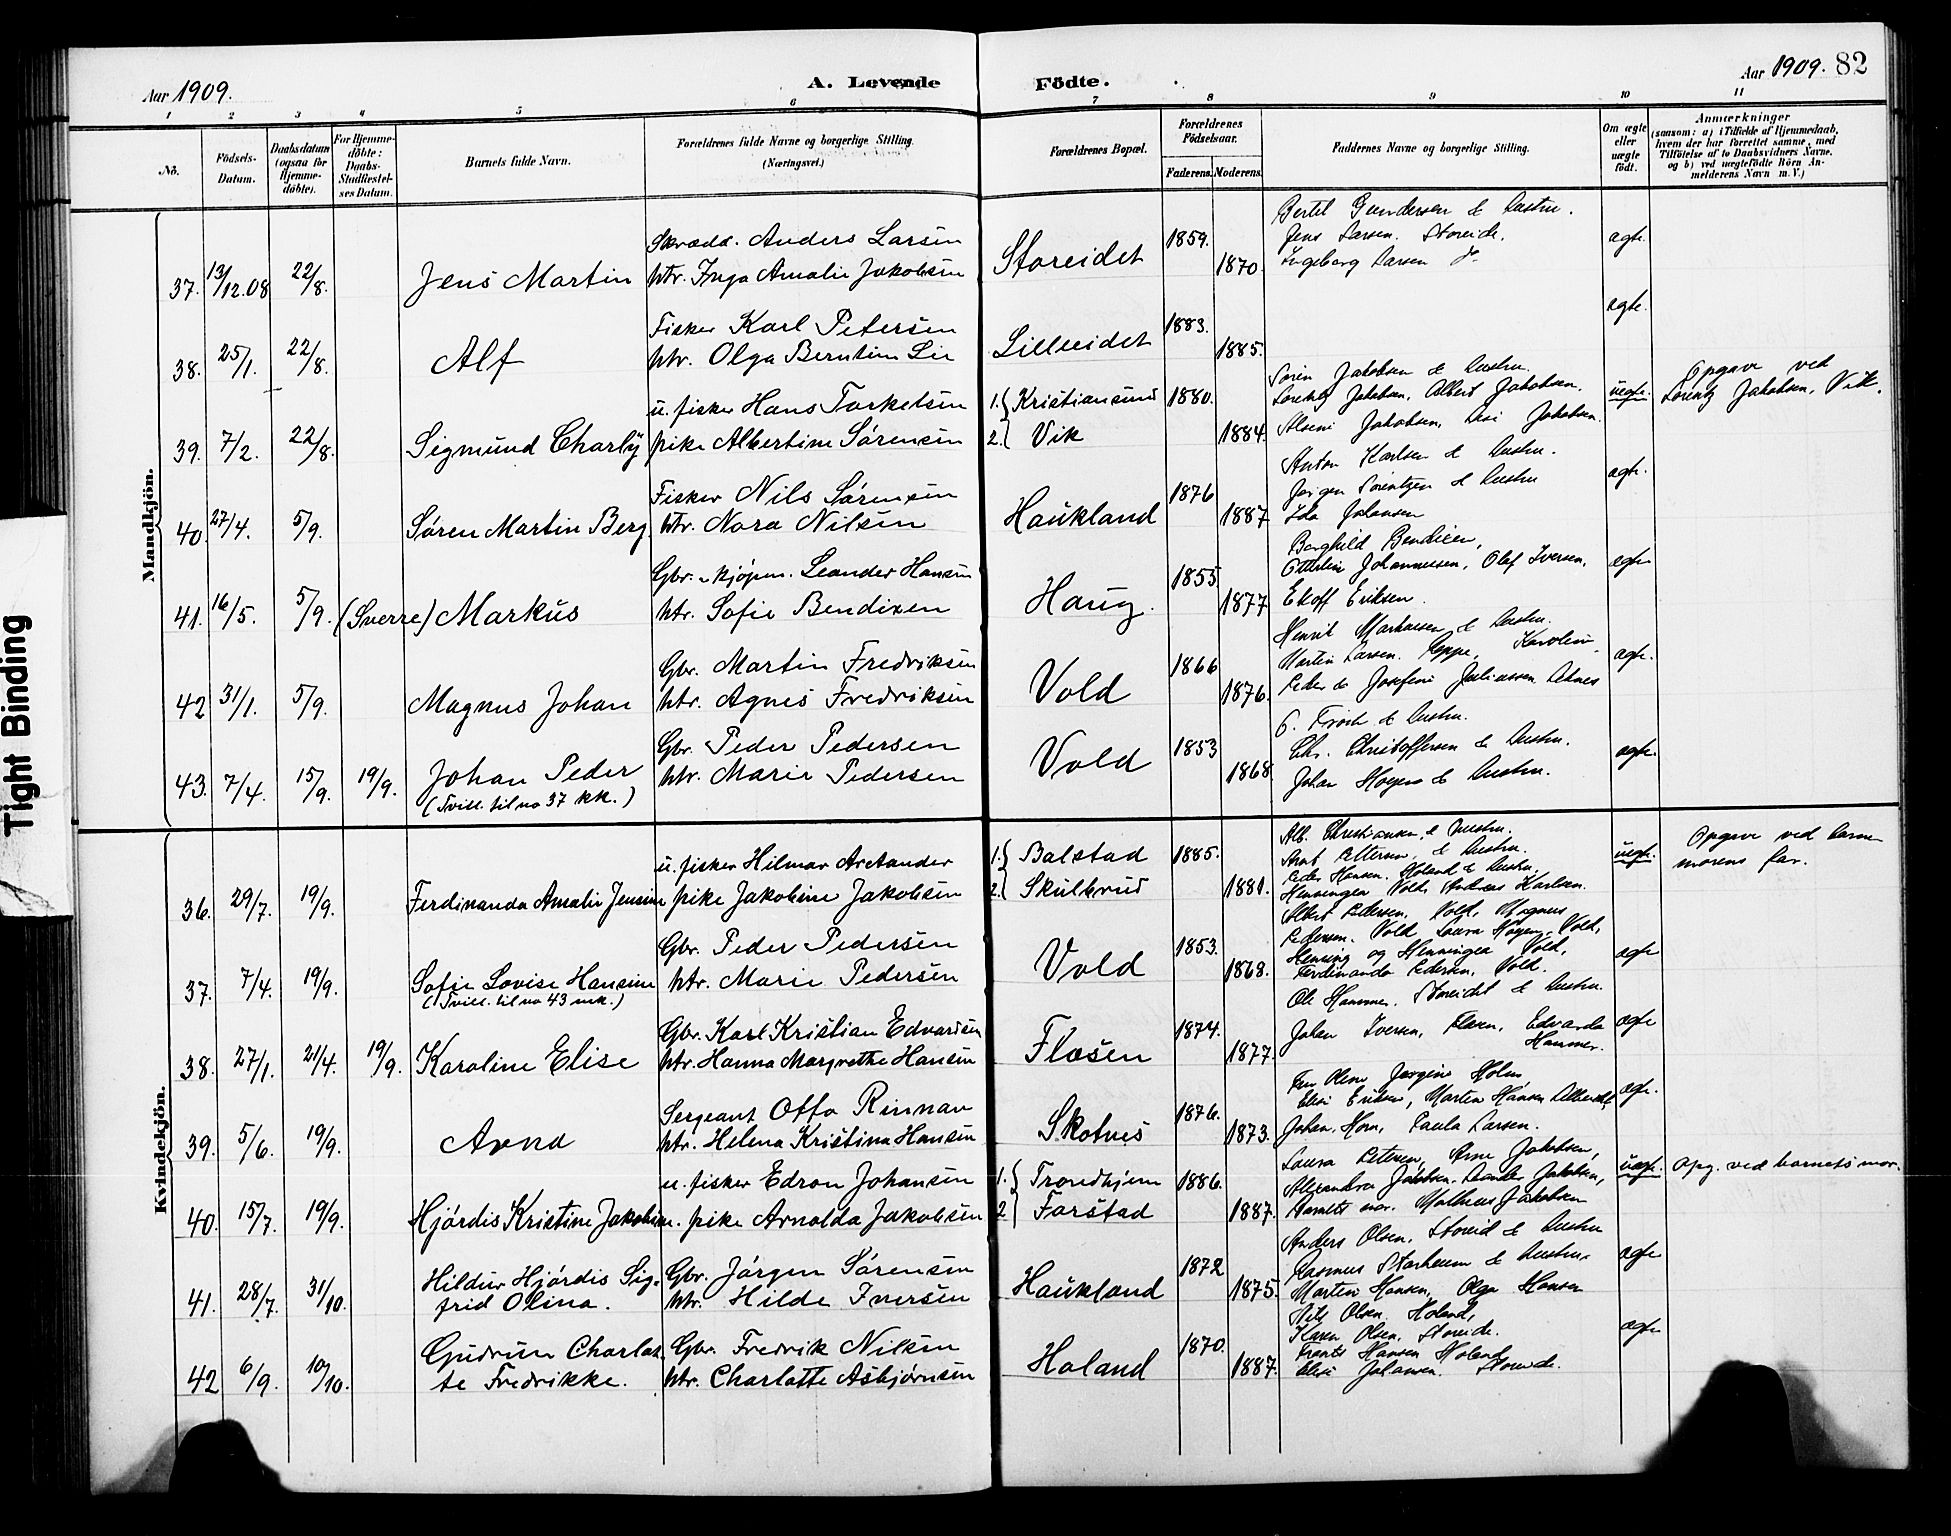 Aar 1909.
A. Levende Födte.
Aar 1909. 82
1 2 3 4 5 6 7 8 9 10 11
No.
Födsels-Datum.
Daabsdatum (ogsaa for Hjemme-döbte).
For Hjemme-döbte: Daabs-Stadfæstelses Datum.
Barnets fulde Navn.
Forældrenes fulde Navne og borgerlige Stilling. (Næringsvei.)
Forældrenes Bopæl.
Forældrenes Födselsaar.
Faderens. Moderens.
Faddernes Navne og borgerlige Stilling.
Om ægte eller uægte födt.
Anmærkninger
(saasom: a) i Tilfælde af Hjemmedaab, hvem der har forrettet samme, med Tilföielse af to Daabsvidners Navne, og b) ved uægtefödte Börn Anmelderens Navn m. V.)
Mandkjön.
Skrædd. Anders Larsen
37. 13/12.08 22/8. Jens Martin htr. Inga Amalie Jakobsen Storeidet 1859. 1870.
Bertel Gundersen & Hustru.
Jens Larsen. Storeide.
Ingeborg Larsen do
ægte.
Fisker Karl Petersen
38. 25/1. 22/8. Alf htr. Olga Berntine Lie Lilleeidet 1883. 1885.
ægte.
u. fisker Hans Torkelsen
39. 7/2. 22/8. Sigmund Charly pike Albertine Sørensen
1. Kristiansund 1880.
2. Vik 1884.
Søren Jakobsen & Hustru.
Lorentz Jakobsen, Albert Jakobsen.
Jakobsen, Jakobsen.
uegte.
Opgave ved
Lorentz Jakobsen, Vik.
Fisker Nils Sørensen
40. 27/4. 5/9. Søren Martin Berg htr. Nora Nilsen Haukland 1876 1887
Anton Karlsen & Hustru.
Jørgen Sørentzen & Hustru
Ida Johansen
ægte.
Gbr. Leander Hansen
41. 16/5. 5/9. (Sverre) Markus htr. Sofie Bendixen Haug. 1855 1877
Borghild Bendixen,
Johannessen, Olaf Iversen,
Eriksen.
ægte.
Gbr. Martin Fredriksen
42 31/1. 5/9. Magnus Johan htr. Agnes Fredriksen Vold 1866 1876.
Henrik Markussen & Hustru.
Martin Larsen. Reppe, Karoline
Peder & Josefine Juliussen
ægte.
Gbr. Peder Pedersen
43. 7/4. 15/9. 19/9. Johan Peder htr. Marie Pedersen Vold 1853 1868
(Tvill. til no 37 kk.)
& Hustru.
Chr. Christoffersen & Hustru.
Johan & Hustru.
ægte.
Kvindekjön.
u. fisker Hilmar Arctander
36. 29/7. 19/9. Ferdinanda Amalie Jensine pike Jakobine Jakobsen
1. Balstad 1885.
2. Skulbrud 1881.
Alb. Christiansen & Hustru.
Pettersen & Hustru.
Peder Hansen. Holand & Hustru.
Henningea Vold, Andreas Karlsen.
uegte.
Opgave ved barnemorens far.
Gbr. Peder Pedersen
37. 7/4. 19/9. Sofie Lovise Hansine htr. Marie Pedersen Vold 1853. 1868.
(Tvill. til no 43 mk.)
Albert Pedersen, Vold, Magnus
Pedersen. Vold Laura Vold,
Henning og Henningea Vold,
Ferdinanda Pedersen, Vold.
ægte
Gbr. Karl Kristian Edvardsen
38. 27/1. 21/4. 19/9. Karoline Elise htr. Hanna Margrethe Hansen Flæsen 1874. 1877.
Ole Hammer. Storeidet & Hustru.
Johan Iversen, Flæsen, Edvarda
Hammer.
ægte
Sergeant Otto Rinnan
39. 5/6. 19/9. Arna htr. Helena Kristina Hansen Skotnes 1876. 1873.
Fru Olene Jørgine Holm
Elise Eriksen, Martin Hansen
Johan Horn, Paula Larsen.
ægte.
u. fisker Edron Johansen
40. 15/7. 19/9. Hjørdis Kristine Jakobine. pike Arnolda Jakobsen
1. Trondhjem 1886.
2 Farstad 1887.
Laura Petersen, Arne Jakobsen,
Alexandra Jakobsen. Leander Jakobsen,
Barnets mor. Jakobsen
uægte.
Opg. ved barnets mor.
41. 28/7. 31/10. Hildur Hjørdis Sig- Gbr. Jørgen Sørensen
frid Olina. htr. Hilde Iversen Haukland 1872 1875.
Anders Olsen, Storeid & Hustru
Rasmus Storheim & Hustru.
Martin Hansen, Olga Hansen
ægte
42 6/9. 10/10. Gudrun Charlot- Gbr. Fredrik Nilsen
te Fredrikke. htr. Charlotte Asbjørnsen Holand 1870. 1887.
Nils Olsen. Holand,
Karen Olsen, Storeide.
Frants Hansen Holand
Elise Johansen. Storeide.
ægte
Tight Binding